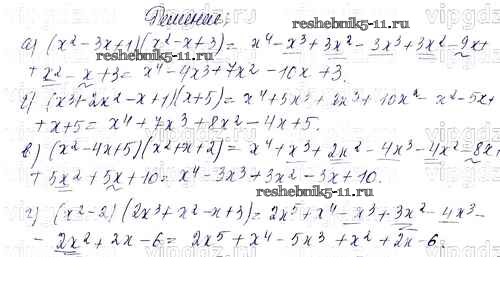 Решение:
reshebnik5-11.ru
а) (x²-3x+1)(x²-x+3)= x⁴-x³+3x²-3x³+3x²-9x+
+x²-x+3= x⁴-4x³+7x²-10x+3.
reshebnik5-11.ru
б) (x³+2x²-x+1)(x+5)= x⁴+5x³+2x³+10x²-x²-5x+
+x+5= x⁴+7x³+8x²-4x+5.
в) (x²-4x+5)(x²+x+2)= x⁴+x³+2x²-4x³-4x²-8x+
+5x²+5x+10= x⁴-3x³+3x²-3x+10.
reshebnik5-11.ru
г) (x²-2)(2x³+x²-x+3)= 2x⁵+x⁴-x³+3x²-4x³-
-2x²+2x-6= 2x⁵+x⁴-5x³+x²+2x-6.